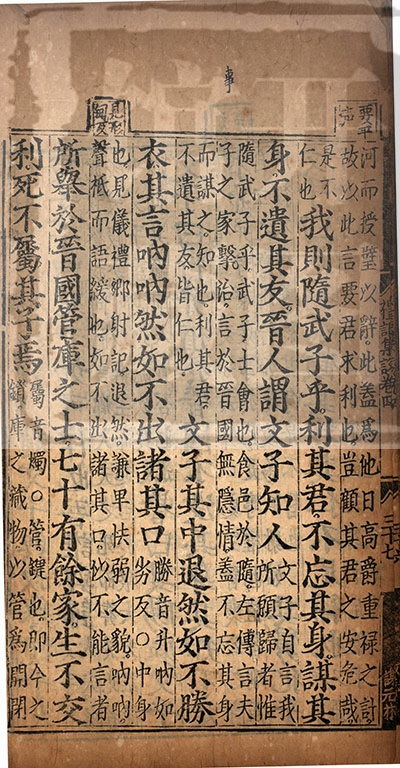 事
要平
聲
河而授璧以辭此蓋為他日高爵重祿之計
故以此言要君求利也豈顧其君之安危哉
是不
仁也
我則隨武子乎利其君不忘其身謀其
身不遺其友晉人謂文子知人
文子自言我
所願歸者惟
隨武子乎武子士會也食邑於隨左傳言夫
子之家擊治言於晉國無隱情蓋不忘其身
而謀之知也利其君
不遺其友皆仁也
文子其中退然如不勝
衣其言吶吶然如不出諸其口
勝音升吶如
劣反○中身
見形
甸反
也見儀禮鄉射記退然兼卑怯弱之貌吶吶
聲柢而語緩也如不出諸其口似不能言者
所舉於晉國管庫之士七十有餘家生不交
利死不屬其子焉
屬音燭○管鍵也即今之
鎖庫之藏物以管為開閉
禮記集說卷四
三十七